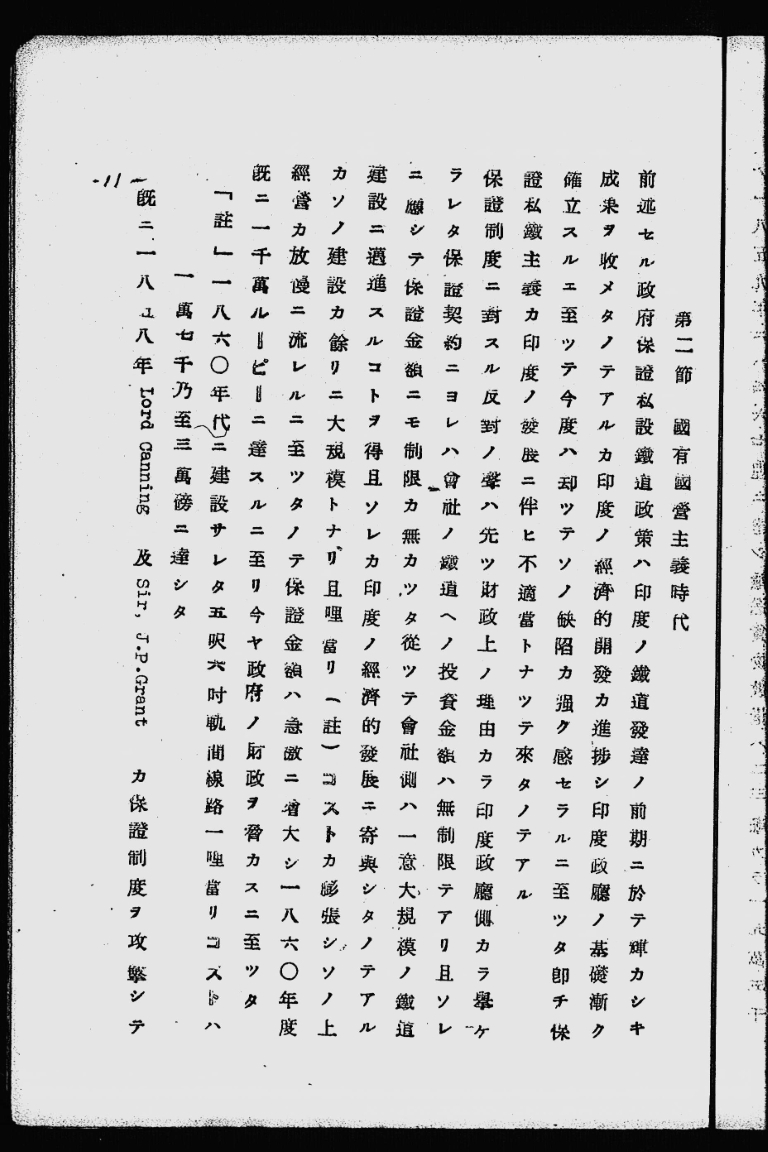 第二節　國有國營主義時代
前述セル政府保證私設鐵道政策ハ印度ノ鐵道發達ノ前期ニ於テ輝カシキ
成果ヲ收メタノテアルカ印度ノ經濟的開發カ進捗シ印度政廳ノ基礎漸ク
確立スルエ至ツテ今度ハ却ツテソノ缺陷カ强ク感セラルニ至ツタ卽チ保
證私鐵主義カ印度ノ發展ニ伴ヒ不適當トナツテ來タノテアル
保證制度ニ對スル反對ノ聲ハ先ツ財政上ノ理由カラ印度政廳側カラ擧ケ
ラレタ保證契約ニヨレハ會社ノ鐵道ヘノ投資金額ハ無制限テアリ且ソレ
ニ應シテ保證金額ニモ制限カ無カツタ從ツテ會社側ハ一意大規模ノ鐵道
建設ニ邁進スルコトヲ得且ソレカ印度ノ經濟的發展ニ寄與シタノテアル
カソノ建設カ餘リニ大規模トナリ且哩當リ（註）コストカ膨張シソノ上
經營カ放慢ニ流レルニ至ツタノテ保證金額ハ急激ニ增大シ一八六〇年度
旣ニ一千萬ルーピーニ達スルニ至リ今ヤ政府ノ財政ヲ脅カスニ至ツタ
「註」一八六〇年代ニ建設サレタ五呎六吋軌間線路一哩當リコストハ
一萬七千乃至三萬磅ニ達シタ
旣ニ一八五八年 Lord Canning 及 Sir, J.P.Grant カ保證制度ヲ攻擊シテ
-11-